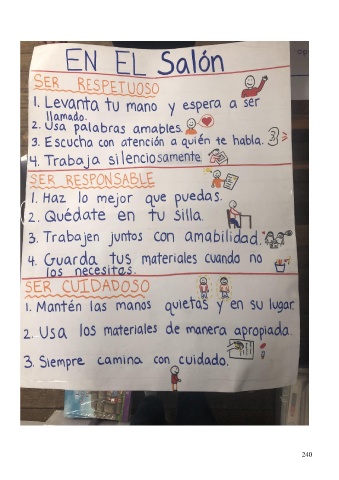 EN EL Salón
SER RESPETUOSO
1. Levanta tu mano y espera a ser
llamado.
2. Usa palabras amables.
3. Escucha con atención a quién te habla.
4. Trabaja silenciosamente
SER RESPONSABLE
1. Haz lo mejor que puedas.
2. Quédate en tu silla.
3. Trabajen juntos con amabilidad.
4. Guarda tus materiales cuando no
los necesitas.
SER CUIDADOSO
1. Mantén las manos quietas y en su lugar.
2. Usa los materiales de manera apropiada.
3. Siempre camina con cuidado.
240